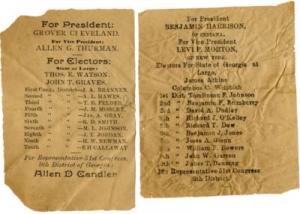 For President:
GROVER CLEVELAND.
For Vice President:
ALLEN G. THURMAN.
For Electors:
State at Large:
THOS. E. WATSON.
JOHN T. GRAVES.
First Cong. District—J. A. BRANNEN.
Second " A. L. HAWES.
Third " T. B. FELDER.
Fourth " J. M. MOBLEY.
Fifth " Jas. A. GRAY.
Sixth " R. D. SMITH.
Seventh " M. L. JOHNSON.
Eighth " J. T. JORDAN.
Ninth " H. W. NEWMAN.
Tenth " CALLAWAY
For Representative 51st Congress,
9th District of Georgia:
Allen D Candler
For President
BENJAMIN HARRISON,
OF INDIANA.
For Vice President
LEVI P. MORTON,
OF NEW YORK.
Electors For State of Georgia at
Large,
James Atkins
Columbus C. Wimbish
1st Dist, Tomlinson F. Johnson
2nd " Benjamin F. Brimberry
3rd " David A. Dudley
5th " Richard J. O'Kelley
" Richard T. Dow
" Benjamin J. Jones
" Jones A. Glenn
" William F. Bowers
" John W. Garson
" James T.
For Representative 51st Congress
9th District.